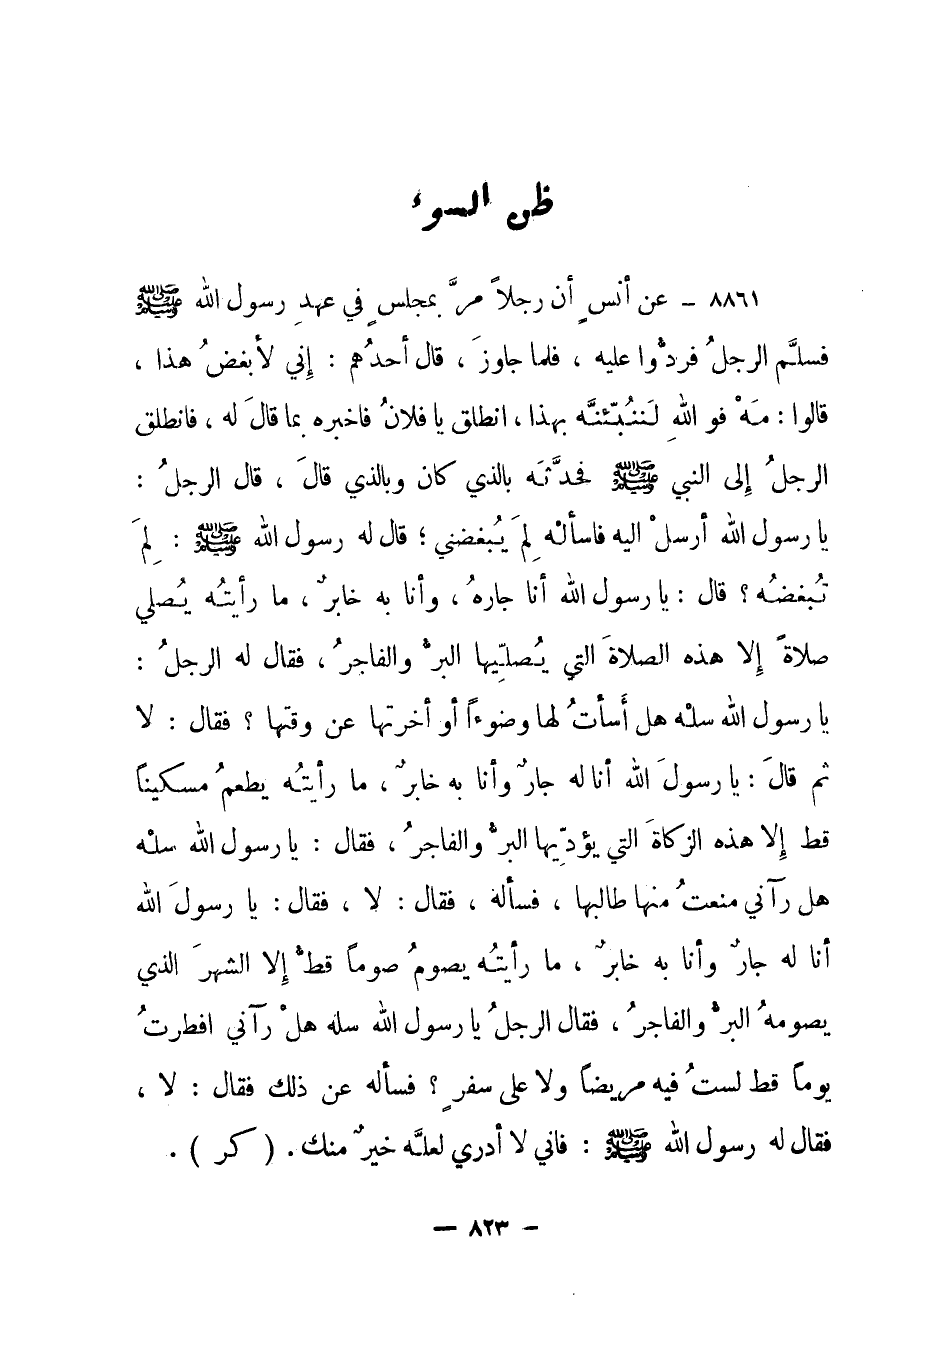 ظن السوء
٨٨٦١ - عن أنسٍ أن رجلاً مرَّ بمجلسٍ في عهدِ رسول الله ﷺ
فسلَّم الرجلُ فردُّوا عليه ، فلما جاوزَ ، قال أحدُهم : إِني لأبغضُ هذا ،
قالوا : مَهْ فو اللهِ لَننُبّئنَّه بهذا ، انطلق يا فلانُ فاخبره بما قالَ له ، فانطلق
الرجلُ إِلى النبي ﷺ فحدَّثَه بالذي كان وبالذي قالَ ، قال الرجلُ :
يا رسول الله أرسلْ اليه فاسألْه لِمَ يُبغضني ؛ قال له رسول الله ﷺ : لِمَ
تُبغضُه ؟ قال : يا رسول الله أنا جارهُ ، وأنا به خابرٌ ، ما رأيتُه يُصلي
صلاةً إِلا هذه الصلاةَ التي يُصلِّيها البرُّ والفاجرُ ، فقال له الرجلُ :
يا رسول الله سلْه هل أَسأتُ لها وضوءاً أو أخرتها عن وقتها ؟ فقال : لا
ثم قالَ : يا رسولَ الله أنا له جارٌ وأنا به خابرٌ ، ما رأيتُه يطعمُ مسكيناً
قط إِلا هذه الزكاةَ التي يؤدِّيها البرُّ والفاجرُ ، فقال : يا رسول الله سلْه
هل رآني منعتُ منها طالبها ، فسأله ، فقال : لا ، فقال : يا رسولَ الله
أنا له جارٌ وأنا به خابرٌ ، ما رأيتُه يصومُ صوماً قطُّ إِلا الشهرَ الذي
يصومهُ البرُّ والفاجرُ ، فقال الرجلُ يا رسول الله سله هلْ رآني افطرتُ
يوماً قط لستُ فيه مريضاً ولا على سفرٍ ؟ فسأله عن ذلك فقال : لا ،
فقال له رسول الله ﷺ : فاني لا أدري لعلَّه خيرٌ منك . ( كر ) .
- ٨٢٣ -